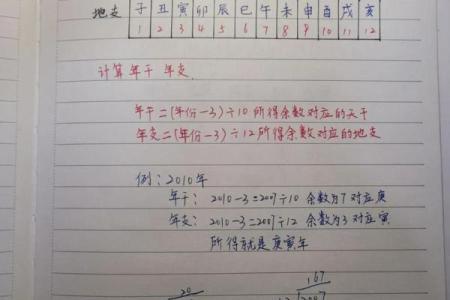 地支 子 丑 寅 卯 辰 巳 午 未 申 酉 戌 亥
1 2 3 4 5 6 7 8 9 10 11 12
计算年干 年支
年干=(年份-3)÷10所得余数对应的天干
年支=(年份-3)÷12所得余数对应的地支
例:2010年
年干: 2010-3=2007÷10 余数为7 对应庚
年支: 2010-3=2007÷12 余数为3 对应寅
所得就是庚寅年
167
2007